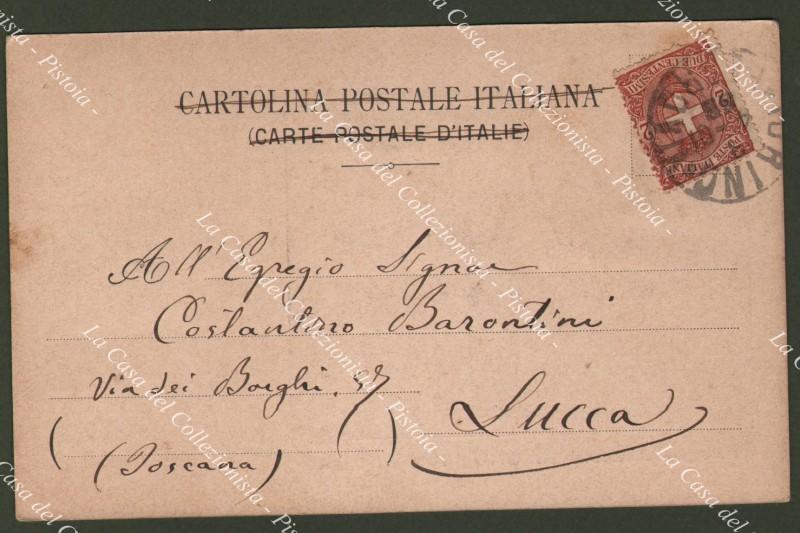 CARTOLINA POSTALE ITALIANA
(CARTE POSTALE D'ITALIE)
DUE CENTESIMI
2 2
POSTE ITALIANE
TORINO
All' Egregio Signor
Costantino Barontini
Via dei Borghi. 37
Lucca
(Toscana)
La Casa del Collezionista - Pistoia -